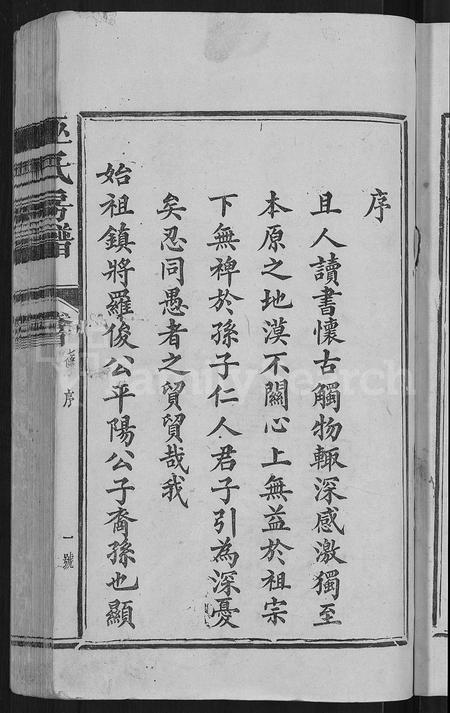 序
且人讀書懷古觸物輙深感激獨至
本原之地漠不關心上無益於祖宗
下無裨於孫子仁人君子引為深憂
矣忍同愚者之貿貿哉我
始祖鎮將羅俊公平陽公子裔孫也顯
巫氏房譜
舊序
一號
FamilySearch